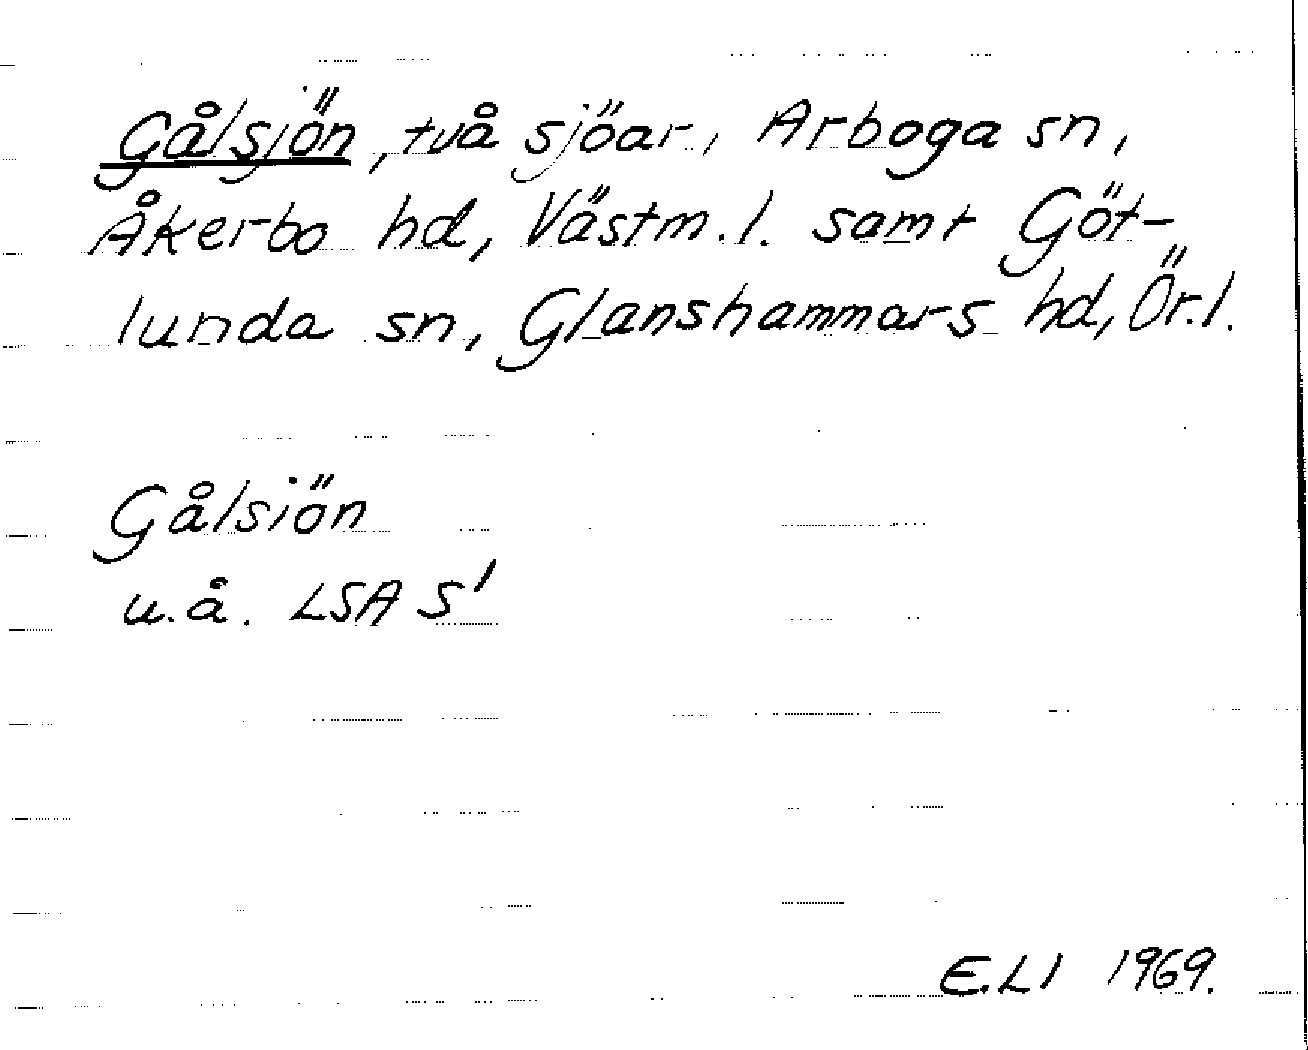 Gålsjön, två sjöar, Arboga sn,
Åkerbo hd, Västm. l. samt Göt-
lunda sn, Glanshammars hd, Ör. l.
Gålsiön
u.å. LSA S¹
E.LI 1969.